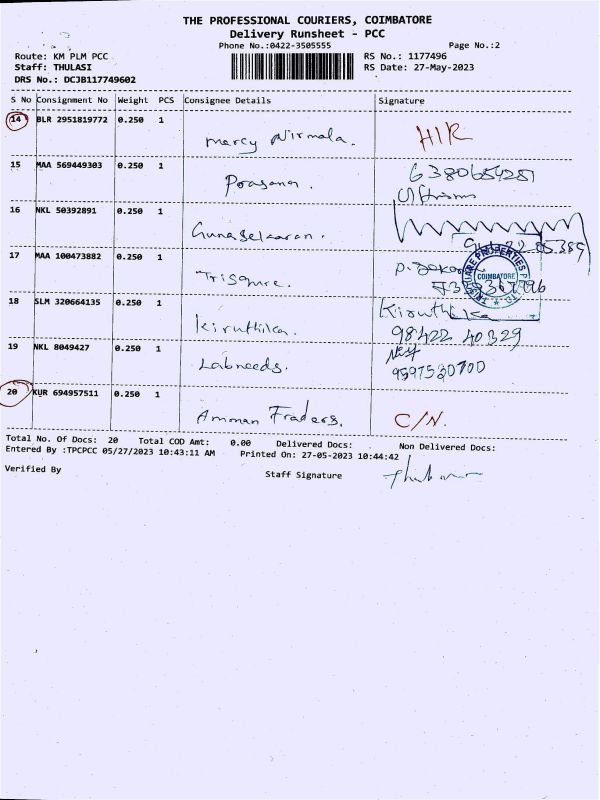 THE PROFESSIONAL COURIERS, COIMBATORE
Delivery Runsheet - PCC
Phone No.:0422-3505555 Page No.:2
Route: KM PLM PCC RS No.: 1177496
Staff: THULASI RS Date: 27-May-2023
DRS No.: DCJB117749602
S No Consignment No Weight PCS Consignee Details Signature
14 BLR 2951819772 0.250 1
Mercy Nirmala.
15 MAA 569449303 0.250 1
Prasana.
16 NKL 50392891 0.250 1
Gunaselkaran.
17 MAA 100473882 0.250 1
Trisqure. COIMBATORE
18 SLM 320664135 0.250 1 Kiruthika
kiruthika. 98422 40329
19 NKL 8049427 0.250 1
Labneeds. 9597530700
20 KUR 694957511 0.250 1
Amman Traders. C/N.
Total No. Of Docs: 20 Total COD Amt: 0.00 Delivered Docs: Non Delivered Docs:
Entered By :TPCPCC 05/27/2023 10:43:11 AM Printed On: 27-05-2023 10:44:42
Verified By Staff Signature